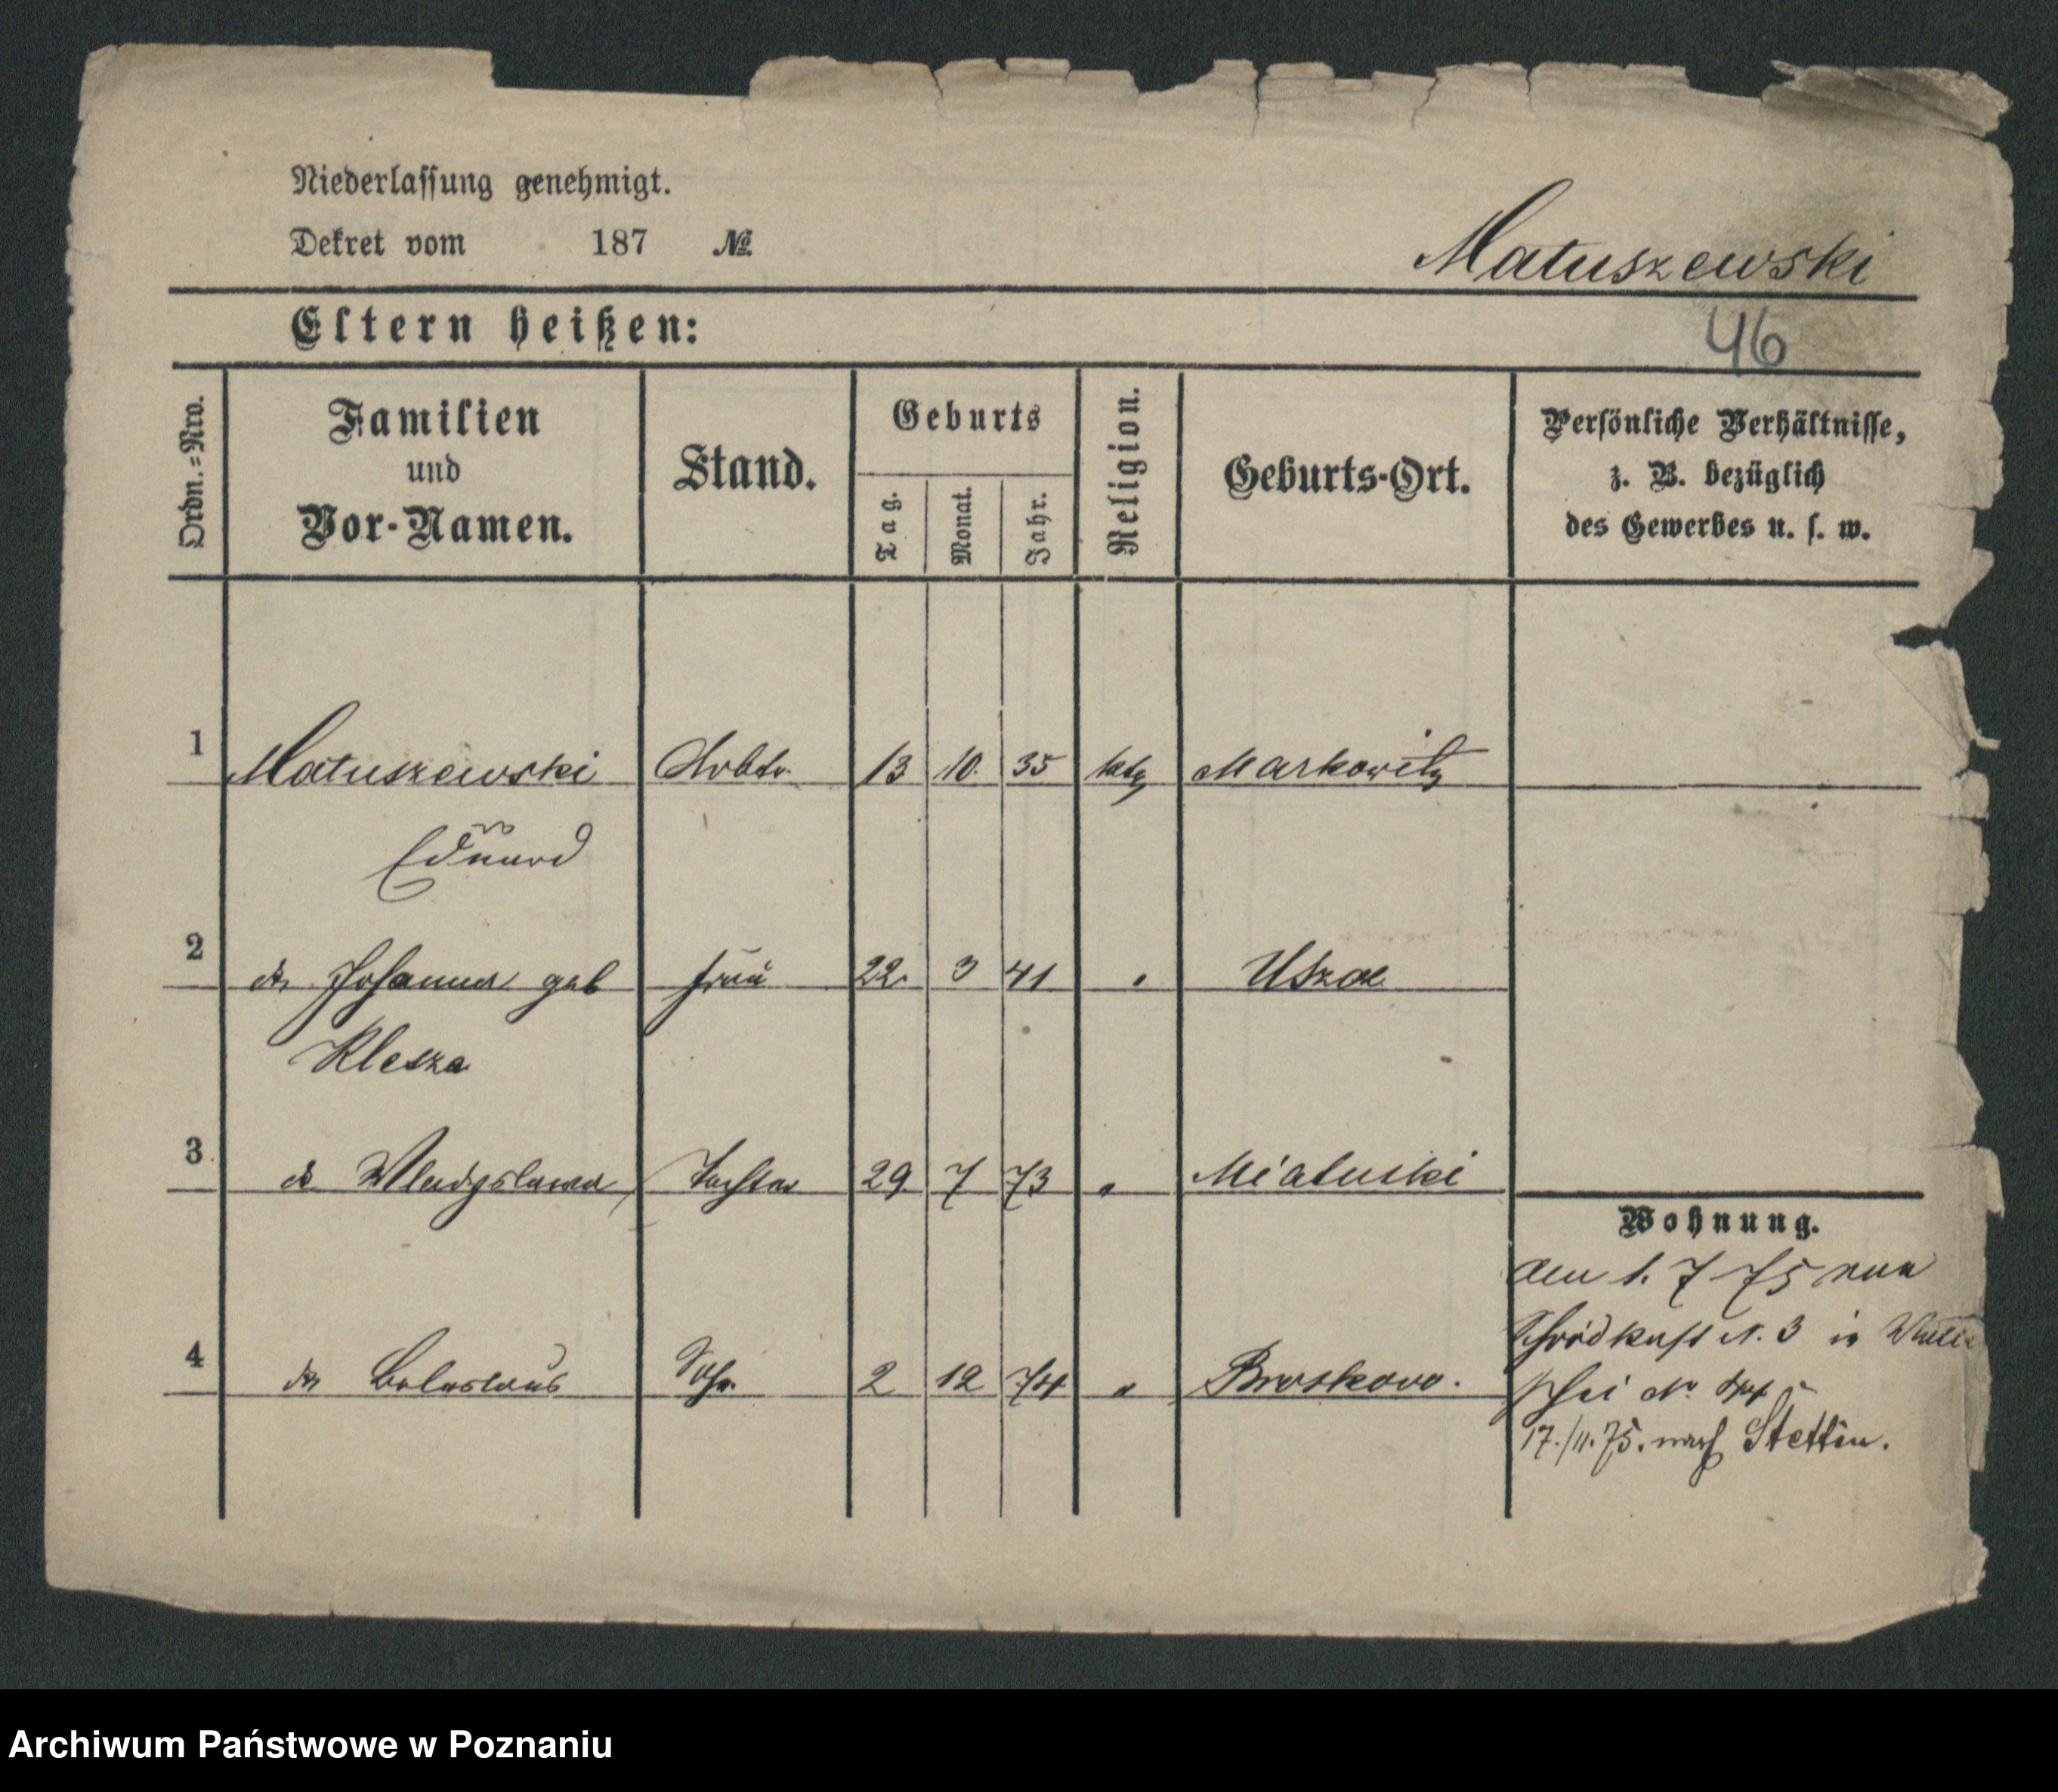 Niederlassung genehmigt.
Dekret vom 187 №
Matuszewski
Eltern heißen:
46
Ordn.-Nro.
Familien
und
Vor-Namen.
Stand.
Geburts
Tag.
Monat.
Jahr.
Religion.
Geburts-Ort.
Persönliche Verhältnisse,
z. B. bezüglich
des Gewerbes u. s. w.
1 Matuszewski Arbtr. 13 10. 35 kath Markowitz
Eduard
2 do Johanna geb Frau 22. 3 41 " Uszce
Klesza
3 do Wladyslawa Tochter 29. 7 73 " Miatuski
4 do Boleslaus Sohn 2 12 74 "
Wohnung.
den 1. 7 75 von
N. 3 in
17./11. 75. nach Stettin.
Archiwum Państwowe w Poznaniu